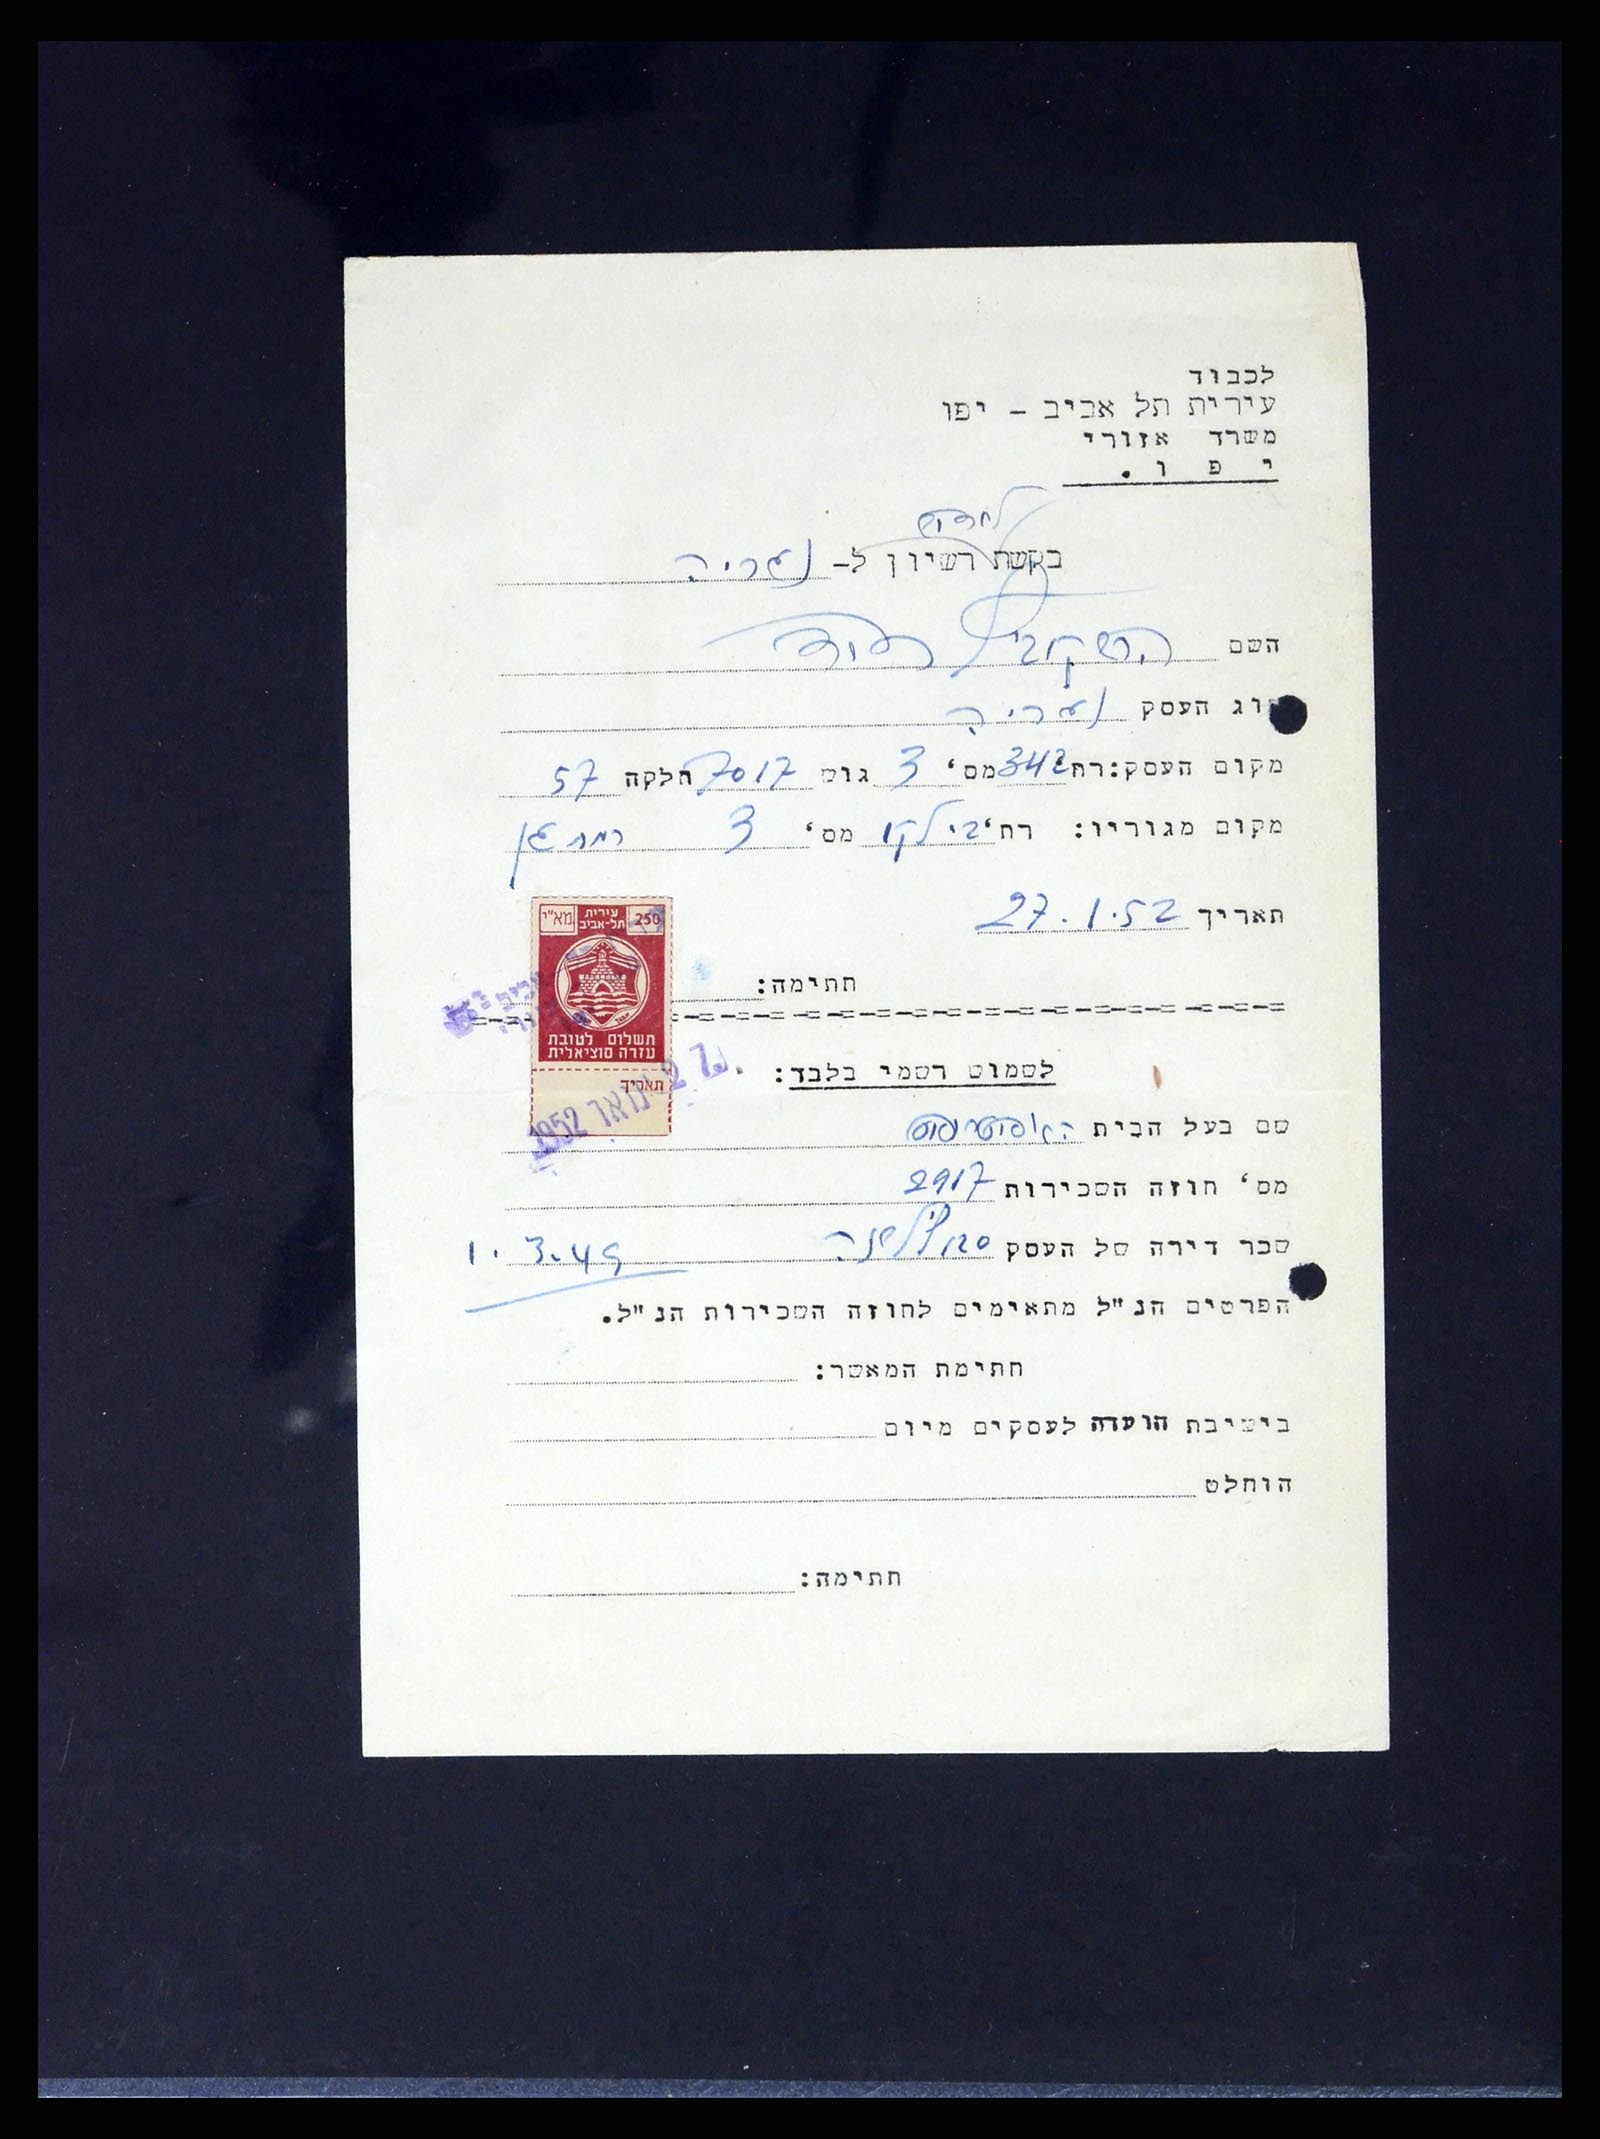 לכבוד
עירית תל אביב - יפו
משרד אזורי
י פ ו .
בקשת רשיון ל- נגריה
השם הרשקוביץ דוד
סוג העסק נגריה
מקום העסק: רח' 342 מס' 3 גוש 7017 חלקה 57
מקום מגוריו: רח' ביאליק מס' 3 רמת גן
תאריך 27.1.52
250 עירית תל-אביב מא"י
חתימה:
תשלום לטובת
עזרה סוציאלית
תאריך
27 ינואר 1952
לשמוש רשמי בלבד:
שם בעל הבית האפוטרופוס
מס' חוזה השכירות 2917
שכר דירה של העסק 1.3.49
הפרטים הנ"ל מתאימים לחוזה השכירות הנ"ל.
חתימת המאשר:
בישיבת הועדה לעסקים מיום
הוחלט
חתימה: